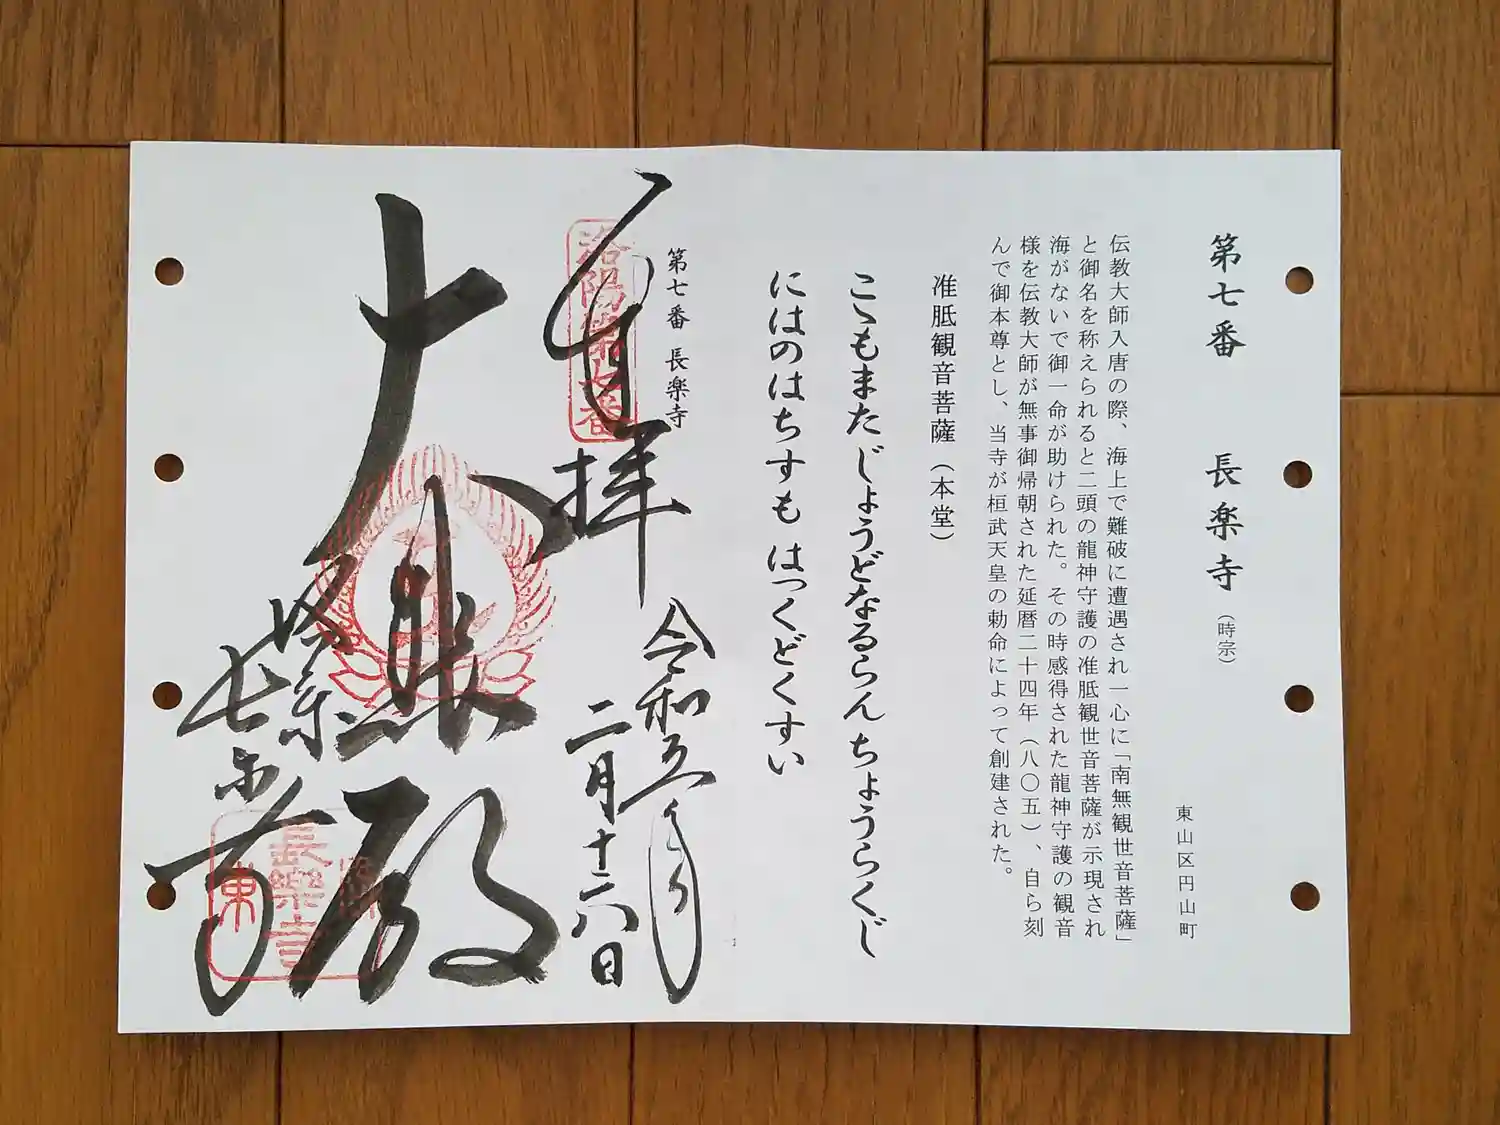 第七番 長楽寺（時宗）
東山区円山町
伝教大師入唐の際、海上で難破に遭遇され一心に「南無観世音菩薩」
と御名を称えられると二頭の龍神守護の准胝観世音菩薩が示現され
海がないで御一命が助けられた。その時感得された龍神守護の観音
様を伝教大師が無事御帰朝された延暦二十四年（八〇五）、自ら刻
んで御本尊とし、当寺が桓武天皇の勅命によって創建された。
准胝観音菩薩（本堂）
こゝもまたじょうどなるらんちょうらくじ
にはのはちすも はっくどくすい
第七番 長楽寺
奉拝
洛陽第七番
令和五年
二月十六日
大悲殿
長楽寺